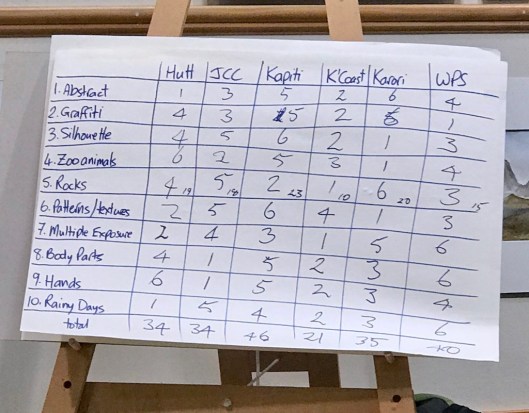 Hutt JCC Kapiti K'Coast Karori WPS
1. Abstract 1 3 5 2 6 4
2. Graffiti 4 3 5 2 1
3. Silhouette 4 5 6 2 1 3
4. Zoo animals 6 2 5 3 1 4
5. Rocks 4 19 5 18 2 23 1 10 6 20 3 15
6. Patterns/textures 2 5 6 4 1 3
7. Multiple Exposure 2 4 3 1 5 6
8. Body Parts 4 1 5 2 3 6
9. Hands 6 1 5 2 3 4
10. Rainy Days 1 5 4 2 3 6
total 34 34 46 21 35 40